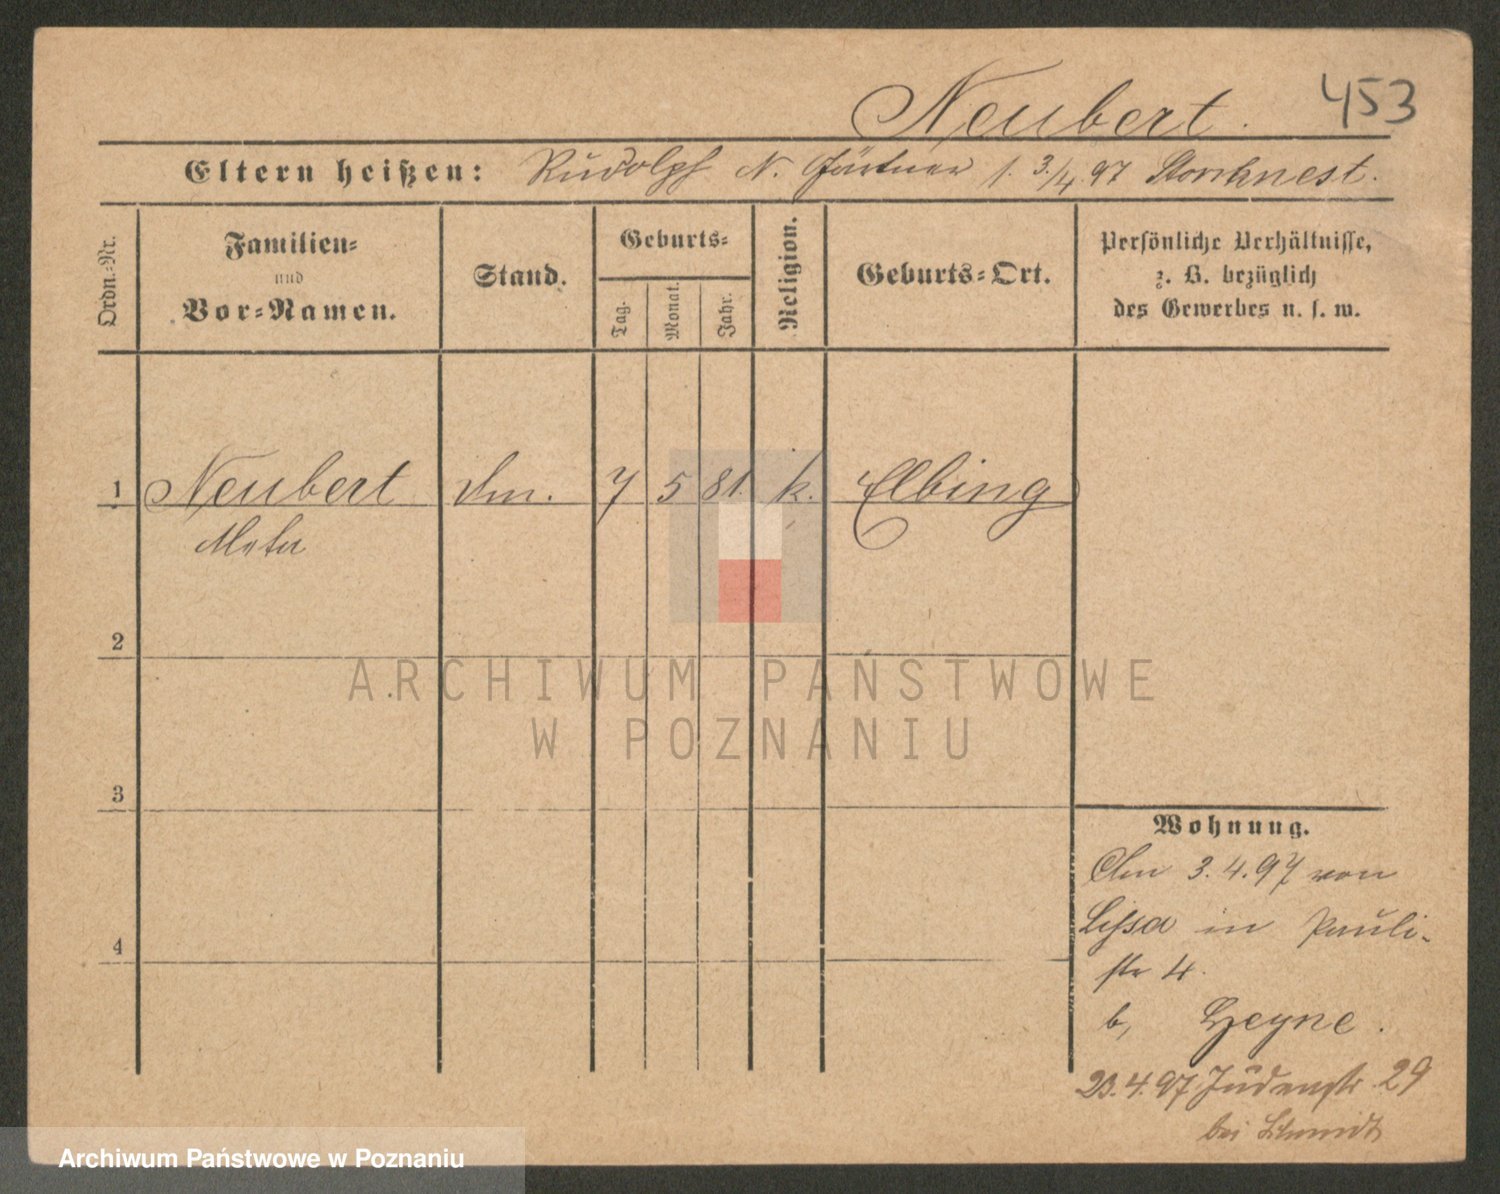 Neubert. 453
Eltern heißen: Rudolph N. Gärtner 1. 3/4.97 Storchnest.
Ordn.-Nr.
Familien-
und
Vor-Namen.
Stand.
Geburts-
Tag.
Monat.
Jahr.
Religion.
Geburts-Ort.
Persönliche Verhältnisse,
z. B. bezüglich
des Gewerbes u. s. w.
1 Neubert 7 5 81. k. Elbing
Meta
2
3
4
Wohnung.
Am 3.4.97 von
Lissa in Pauli-
str 4.
b, Heyne.
23.4.97 Judenstr. 29
bei Schmidt
ARCHIWUM PAŃSTWOWE
W POZNANIU
Archiwum Państwowe w Poznaniu